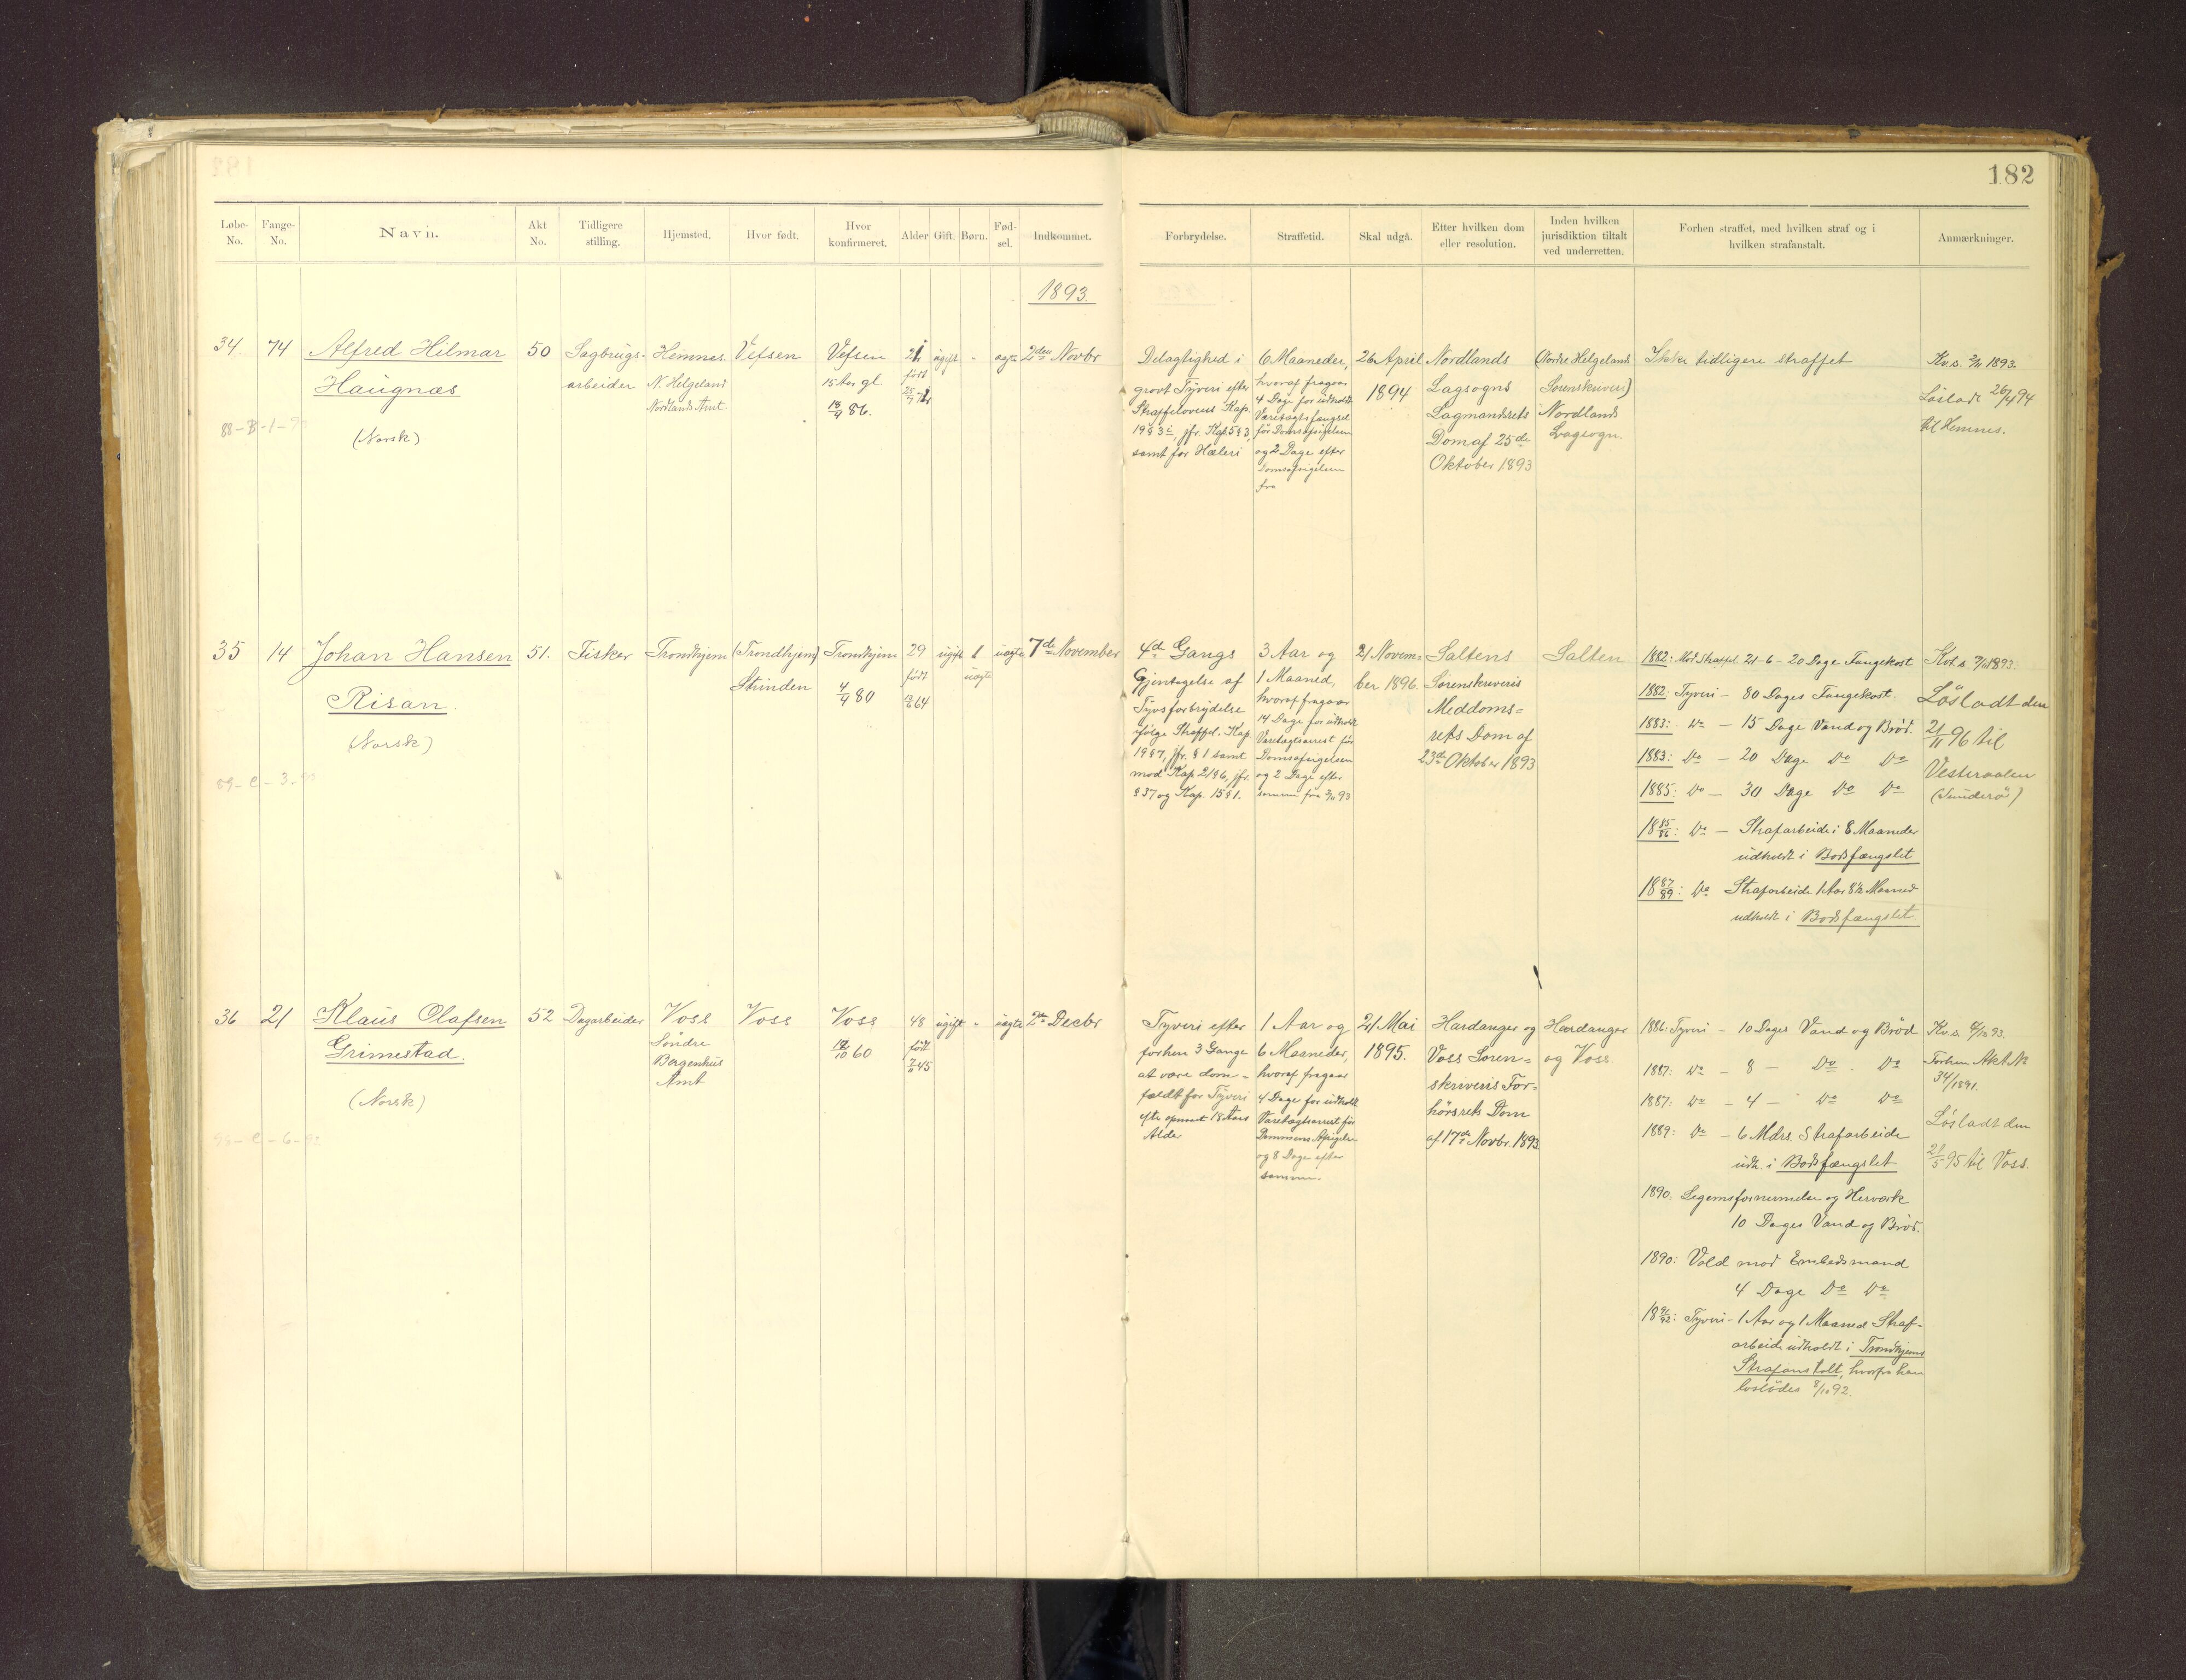 182
Løbe-No. Fange-No. Navn. Akt No. Tidligere stilling. Hjemsted. Hvor født. Hvor konfirmeret. Alder Gift. Børn. Fød-sel. Indkommet.
Forbrydelse. Straffetid. Skal udgå. Efter hvilken dom eller resolution. Inden hvilken jurisdiktion tiltalt ved underretten. Forhen straffet, med hvilken straf og i hvilken strafanstalt. Anmærkninger.
1893.
34
74
Alfred Hilmar
Haugnæs
(Norsk)
50
Sagbrugs-
arbeider
Hemnes.
N. Helgeland
Nordlands Amt.
Vefsen
Vefsen
15 Aar gl.
18/4 86.
født
ugift
-
ægte
2den Novbr
Delagtighed i
grovt Tyveri efter
Straffelovens Kap.
19 § 3 i, jfr. Kap. 5 § 3,
samt for Hæleri
6 Maaneder,
hvoraf fragaar
4 Dage for udholdt
Varetægtsfængsel
før Domsafsigelsen
og 2 Dage efter
Domsafsigelsen
fra
26 April
1894
Nordlands
Lagsogns
Lagmandsrets
Dom af 25de
Oktober 1893
(Nordre Helgelands
Sorenskriveri)
Nordlands
Lagsogn.
Ikke tidligere straffet
Kv.s. 2/11 1893.
Løsladt 26/4 94
til Hemnes.
35
14
Johan Hansen
Risan.
(Norsk)
89-C-3-93
51.
Fisker
Trondhjem
(Trondhjem)
Strinden
Trondhjem
4/4 80
29
født
64
ugift
1
uægte
uægte
7de November
4de Gangs
Gjentagelse af
Tyvsforbrydelse
ifølge Straffel. Kap.
19 § 7, jfr. § 1 samt
mod Kap 21 § 6, jfr.
§ 37 og Kap. 15 § 1.
3 Aar og
1 Maaned,
hvoraf fragaar
14 Dage for udholdt
Varetægtsarrest før
Domsafsigelsen
og 2 Dage efter
samme fra 3/11 93
21 Novem-
ber 1896.
Saltens
Sorenskriveris
Meddoms=
rets Dom af
23de Oktober 1893
Salten
1882: Mod Straffel. 21-6 - 20 Dage Fangekost
1882: Tyveri - 80 Dages Fangekost.
1883: Do - 15 Dage Vand og Brød.
1883: Do - 20 Dage Do Do
1885: Do - 30 Dage Do Do
18 85/86: Do - Strafarbeide i 8 Maaneder
udholdt i Bodsfængslet
18 87/89: Do Strafarbeide 1 Aar 8½ Maaned
udholdt i Bodsfængslet
Kvt. s. 7/11 1893.
Løsladt den
21/11 96 til
Vesteraalen
36
21
Klaus Olafsen
Grimestad.
(Norsk)
52
Dagarbeider
Voss
Søndre
Bergenhus
Amt
Voss
Voss
10 60
48
født
45
ugift
-
uægte
2den Decbr
Tyveri efter
forhen 3 Gange
at være dom-
fældt for Tyveri
efter opnaaet 18 Aars
Alder
1 Aar og
6 Maaneder,
hvoraf fragaar
4 Dage for udholdt
Varetægtsarrest før
Dommens Afsigelse
og 8 Dage efter
samme.
21 Mai
1895.
Hardanger og
Voss Soren=
skriveris For=
hørsrets Dom
af 17de Novbr. 1893.
Hardanger
og Voss
1886: Tyveri - 10 Dages Vand og Brød
1887: Do - 8 - Do Do
1887: Do - 4 - Do Do
1889: Do - 6 Mdrs. Strafarbeide
udh. i Bodsfængslet
1890: Legemsfornærmelse og Herværk
10 Dages Vand og Brød.
1890: Vold mod Embedsmand
4 Dage Do Do
18 91/92: Tyveri - 1 Aar og 1 Maaned Straf-
arbeide udholdt i Trondhjems
Strafanstalt, hvorfra han
løslodes 8/10 92.
Kv.s. 93.
Forhen Akt №
34/1891.
Løsladt den
21/5 95 til Voss.